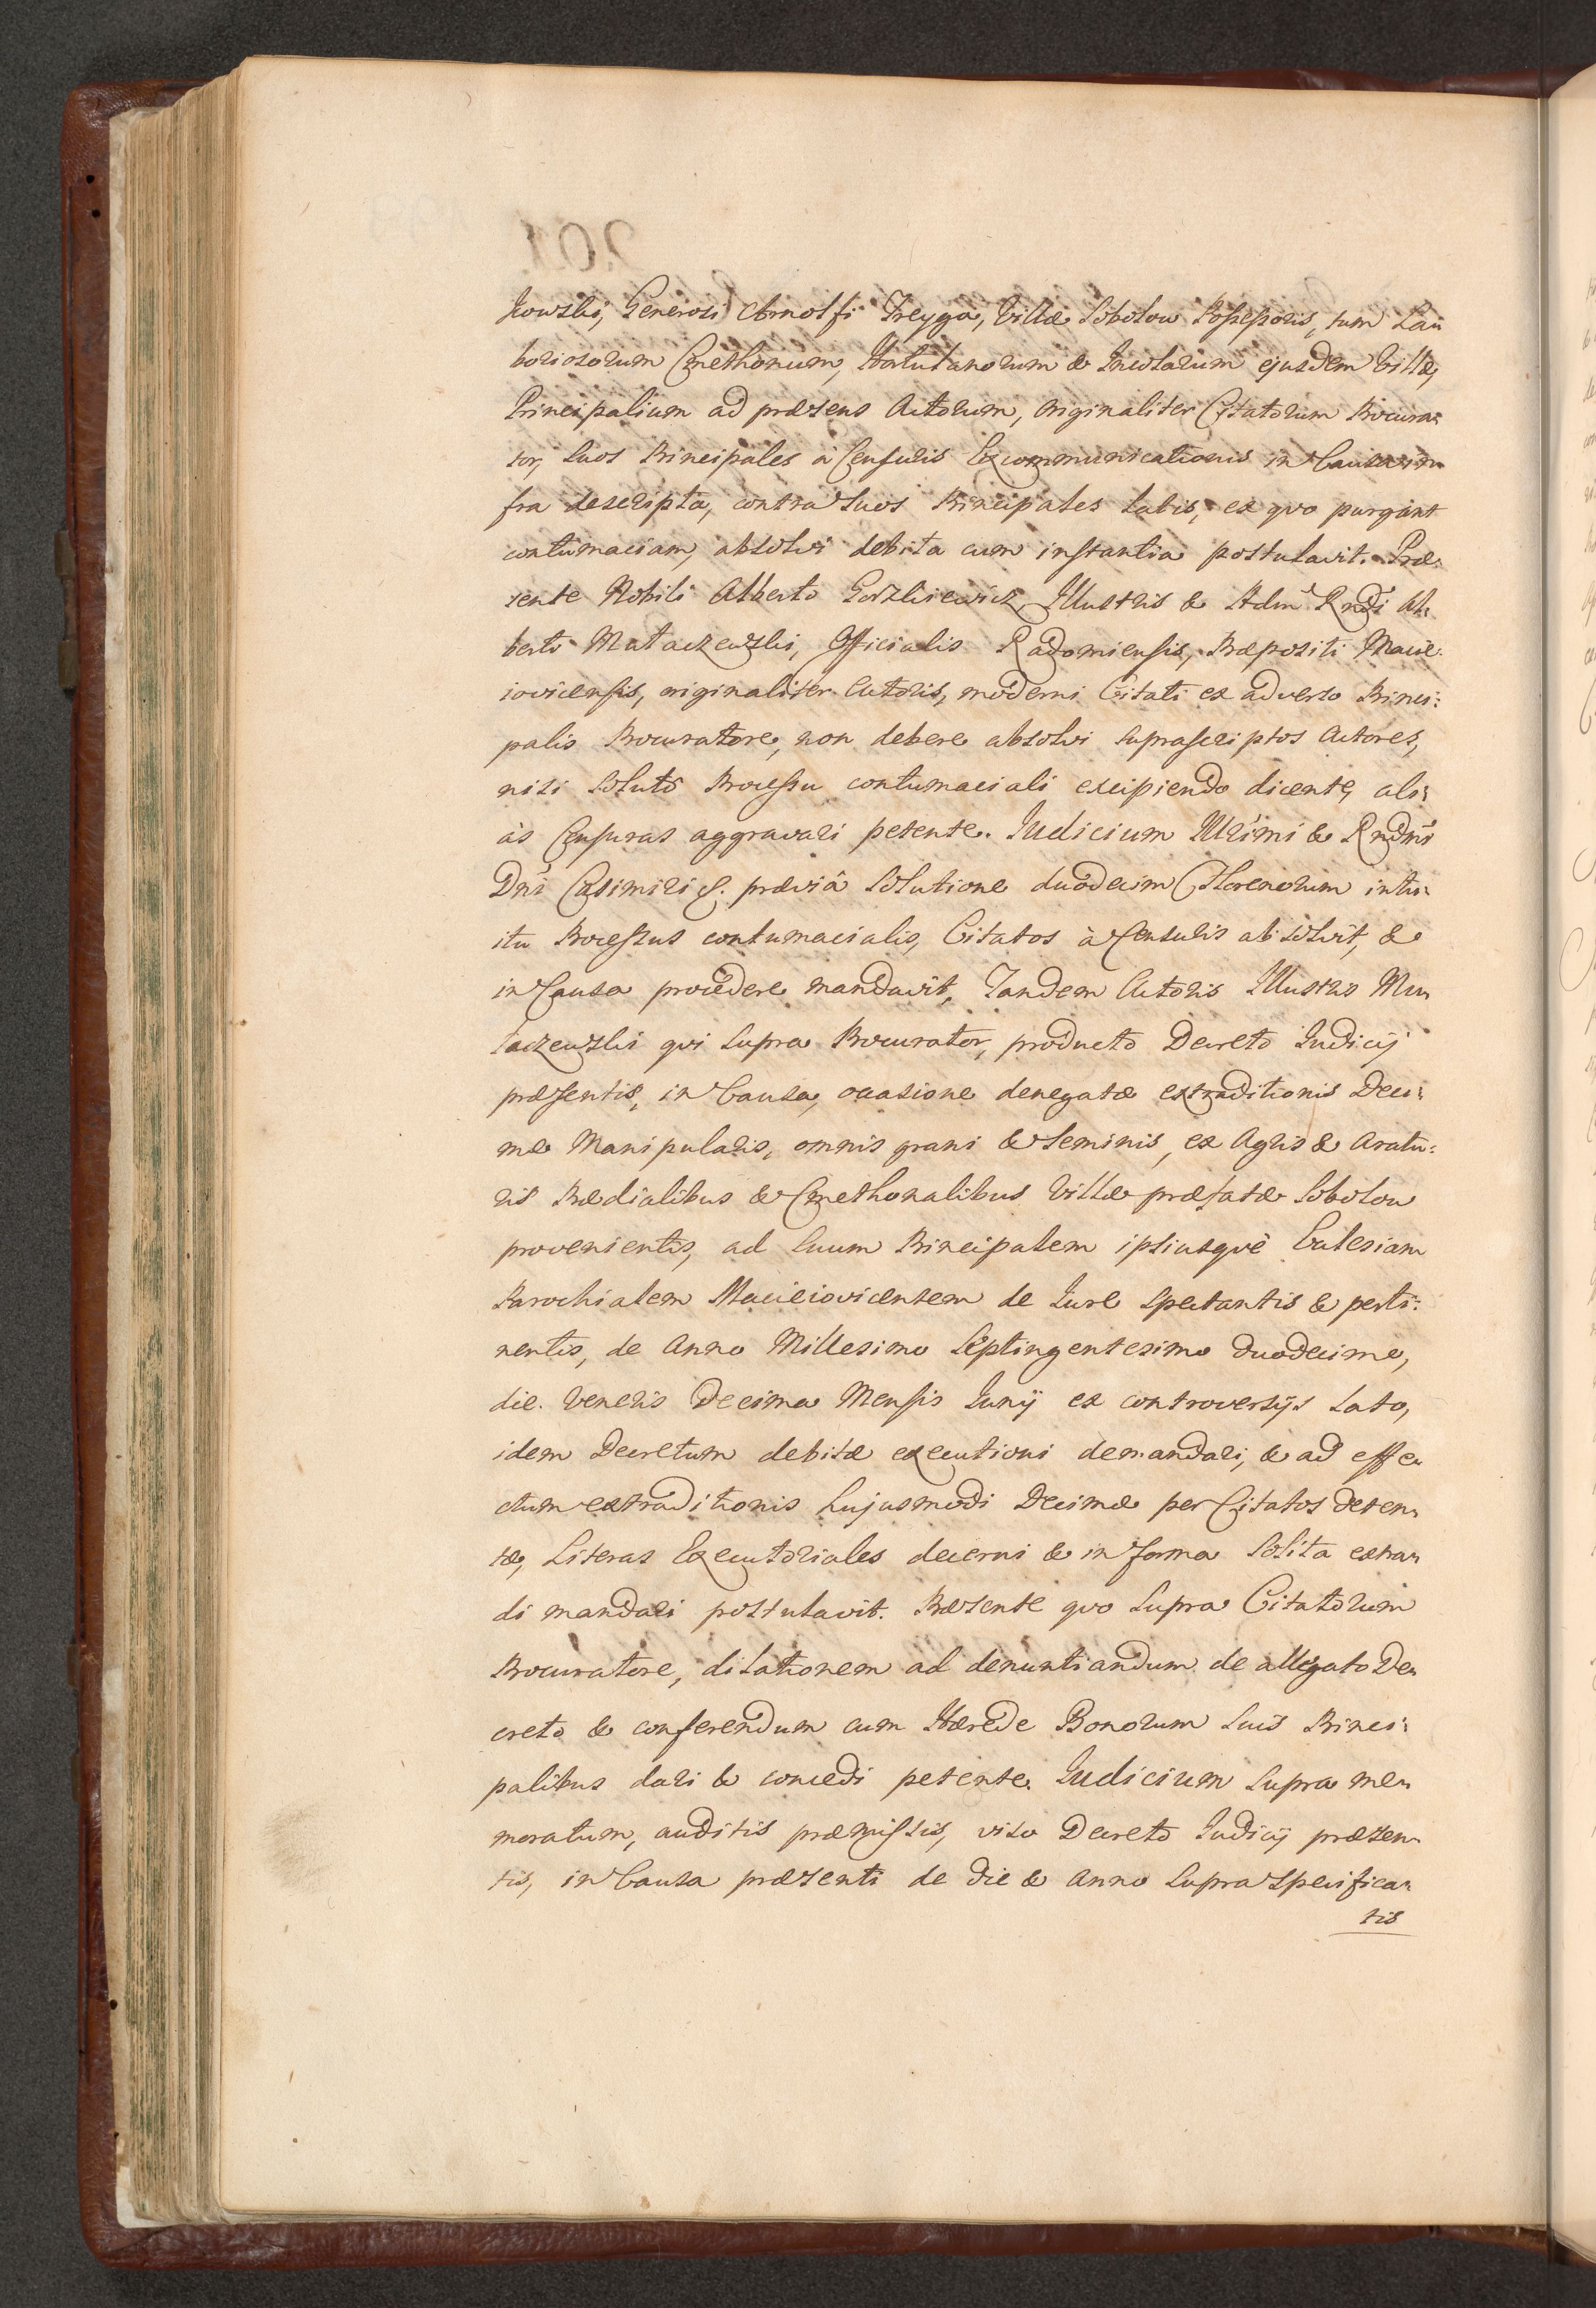 kowski, Generosi Arnolfi Freyga, Villæ Sobolow Possessoris, tum La=
boriosorum Cmethonum, Hortulanorum & Incolarum ejusdem Villæ,
Principalium ad præsens Actorum, originaliter Citatorum Procura=
tor, Suos Principales à Censuris Excommunicationis in Causa in=
fra descripta, contra Suos Principales latis, ex quo purgant
contumaciam, absolvi debita cum instantia postulavit. Præ=
sente Nobili Alberto Gorzkiewicz, Illustris & Adm Rndi Al=
berti Mataczewski, Officialis Radomiensis, Præpositi Macie=
iovicensis, originaliter Actoris, moderni Citati ex adverso Princi=
palis Procuratore, non debere absolvi suprascriptos Actores,
nisi soluto Processu contumaciali excipiendo dicente, ali=
às Censuras aggravari petente. Judicium Illrimi & Rndmi
Dni Casimiri &. præviâ Solutione duodecim Florenorum intu=
itu Processus contumacialis, Citatos à Censuris absolvit, &
in Causa procedere mandavit, Tandem Actoris Illustris Ma=
taczewski qui supra Procurator, producto Decreto Judicij
præsentis, in Causa, occasione denegatæ extraditionis Deci=
mæ Manipularis, omnis grani & seminis, ex Agris & Aratu=
ris Prædialibus & Cmethonalibus Villæ præfatæ Sobolow
provenientis, ad Suum Principalem ipsiusquè Ecclesiam
Parochialem Macieiovicensem de Jure spectantis & perti=
nentis, de Anno Millesimo Septingentesimo duodecimo,
die Veneris Decima Mensis Junij ex controversijs lato,
idem Decretum debitæ executioni demandari, & ad effe=
ctum extraditionis hujusmodi Decimæ per Citatos deten=
tæ, Literas Executoriales decerni & in forma Solita extra=
di mandari postulavit. Præsente quo Supra Citatorum
Procuratore, dilationem ad denuntiandum de allegato De=
creto & conferendum cum Hærede Bonorum Suis Princi=
palibus dari & concedi petente. Judicium Supra me=
moratum, auditis præmissis, viso Decreto Judicij præsen=
tis, in Causa præsenti de die & Anno Supra specifica=
tis